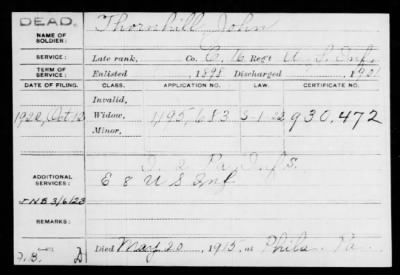 DEAD.
NAME OF SOLDIER: Thornhill John
SERVICE: Late rank, Co. C, 16 Reg't U. S. Inf.
TERM OF SERVICE: Enlisted 1898 Discharged
DATE OF FILING. CLASS. APPLICATION NO. LAW. CERTIFICATE NO.
Invalid,
1922, Oct 12 Widow, 1195,683 930,472
Minor,
ADDITIONAL SERVICES: Pa Inf.
E 8 U S Inf
REMARKS:
Died May 20, 1915, at Phila. Pa.